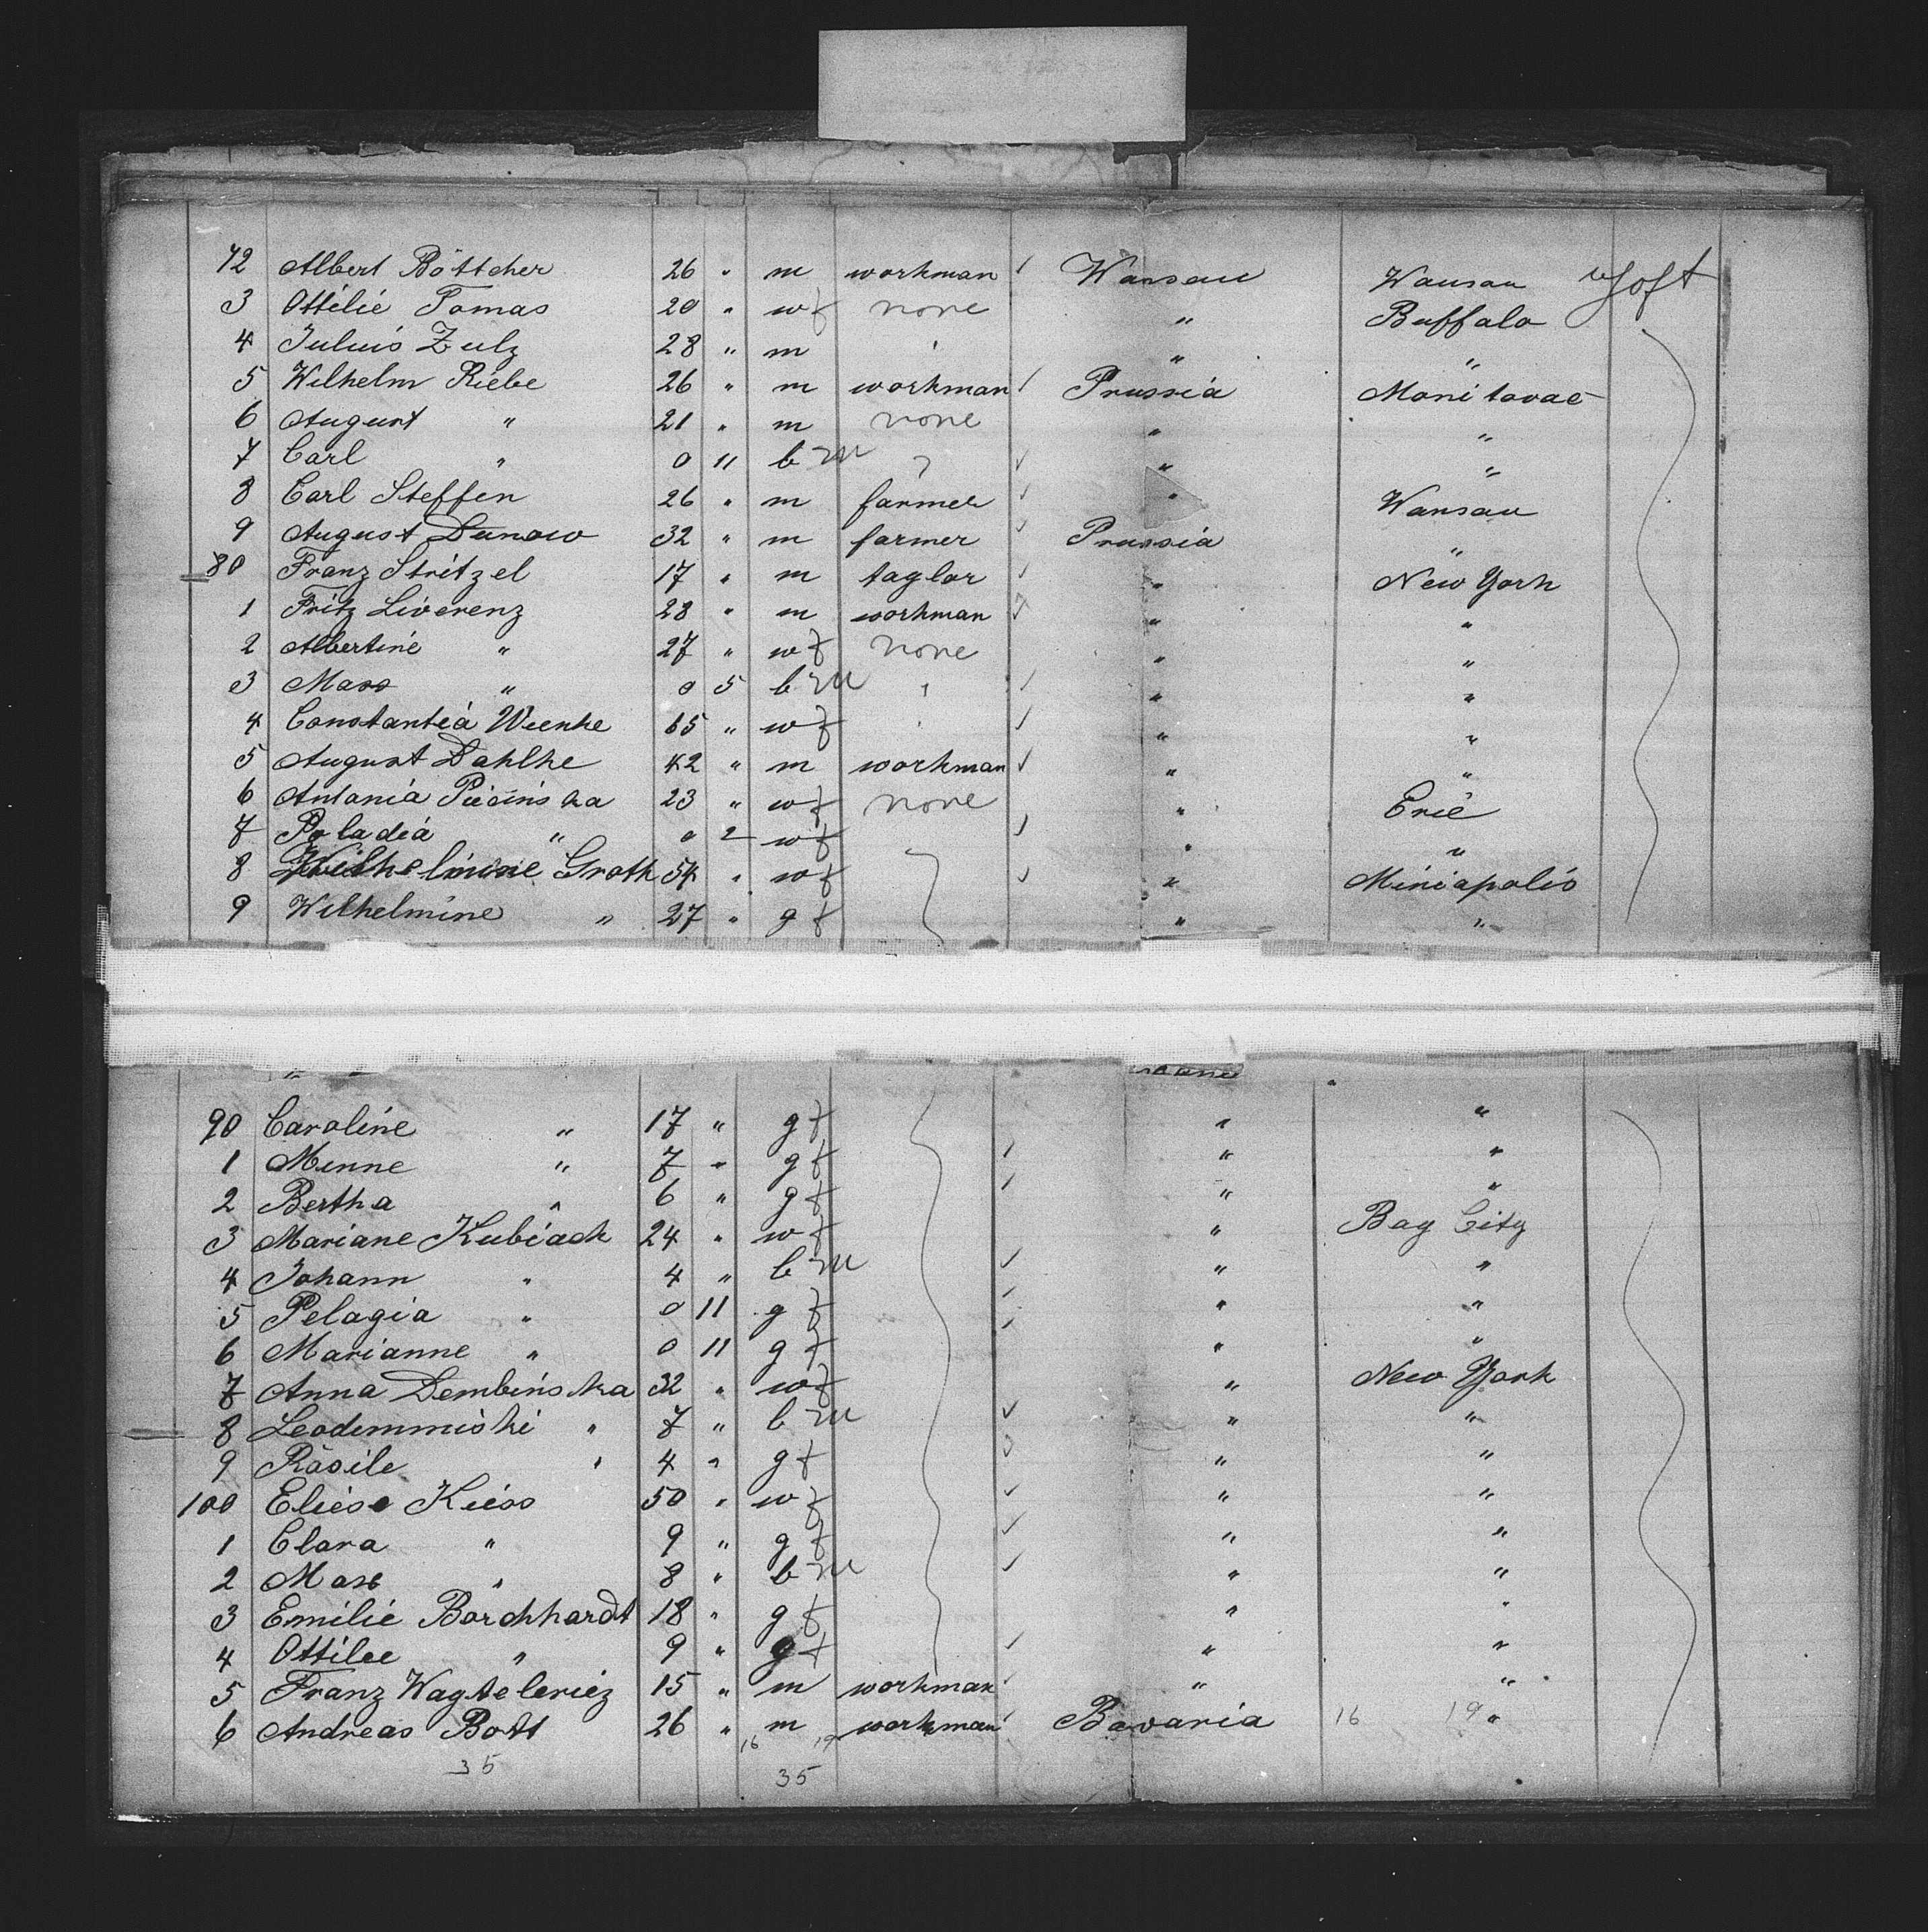 72 Albert Böttcher 26 " m workman ✓ Wansau Wausau
3 Ottilie Tomas 20 " w f none " Buffalo
4 Julius Zulz 28 " m " " "
5 Wilhelm Riebe 26 " m workman ✓ Prussia Manitovac
6 August " 21 " m none " "
7 Carl " 0 11 b m " ✓ " "
8 Carl Steffen 26 " m farmer ✓ " Wansau
9 August Dunow 32 " m farmer ✓ Prussia "
80 Franz Stritzel 17 " m taylor ✓ " New York
1 Fritz Liverenz 28 " m workman ✓ " "
2 Albertine " 27 " w f none " "
3 Mass " 0 5 b m " ✓ " "
4 Constantia Weenke 65 " w f " ✓ " "
5 August Dahlke 42 " m workman ✓ " "
6 Antonia 23 " w f none " Erie
7 Poladia " 0 2 w f ✓ " "
8 Wilhelmine Groth 54 " w f ✓ " Miniapolis
9 Wilhelmine " 27 " g f " "
90 Caroline " 17 " g f " "
1 Minne " 7 " g f ✓ " "
2 Bertha " 6 " g f ✓ " "
3 Mariane Kubiack 24 " w f " Bay City
4 Johann " 4 " b m ✓ " "
5 Pelagia " 0 11 g f ✓ " "
6 Marianne " 0 11 g f ✓ " "
7 Anna Dembinska 32 " w f " New York
8 " 7 " b m ✓ " "
9 Rosile " 4 " g f ✓ " "
100 Eliese Kiess 50 " w f ✓ " "
1 Clara " 9 " g f ✓ " "
2 Max " 8 " b m ✓ " "
3 Emilie Borchhardt 18 " g f " "
4 Ottilee " 9 " g f ✓ " "
5 Franz 15 " m workman ✓ " "
6 Andreas Bott 26 " m workman ✓ Bavaria 16 19 "
16 19
35 35